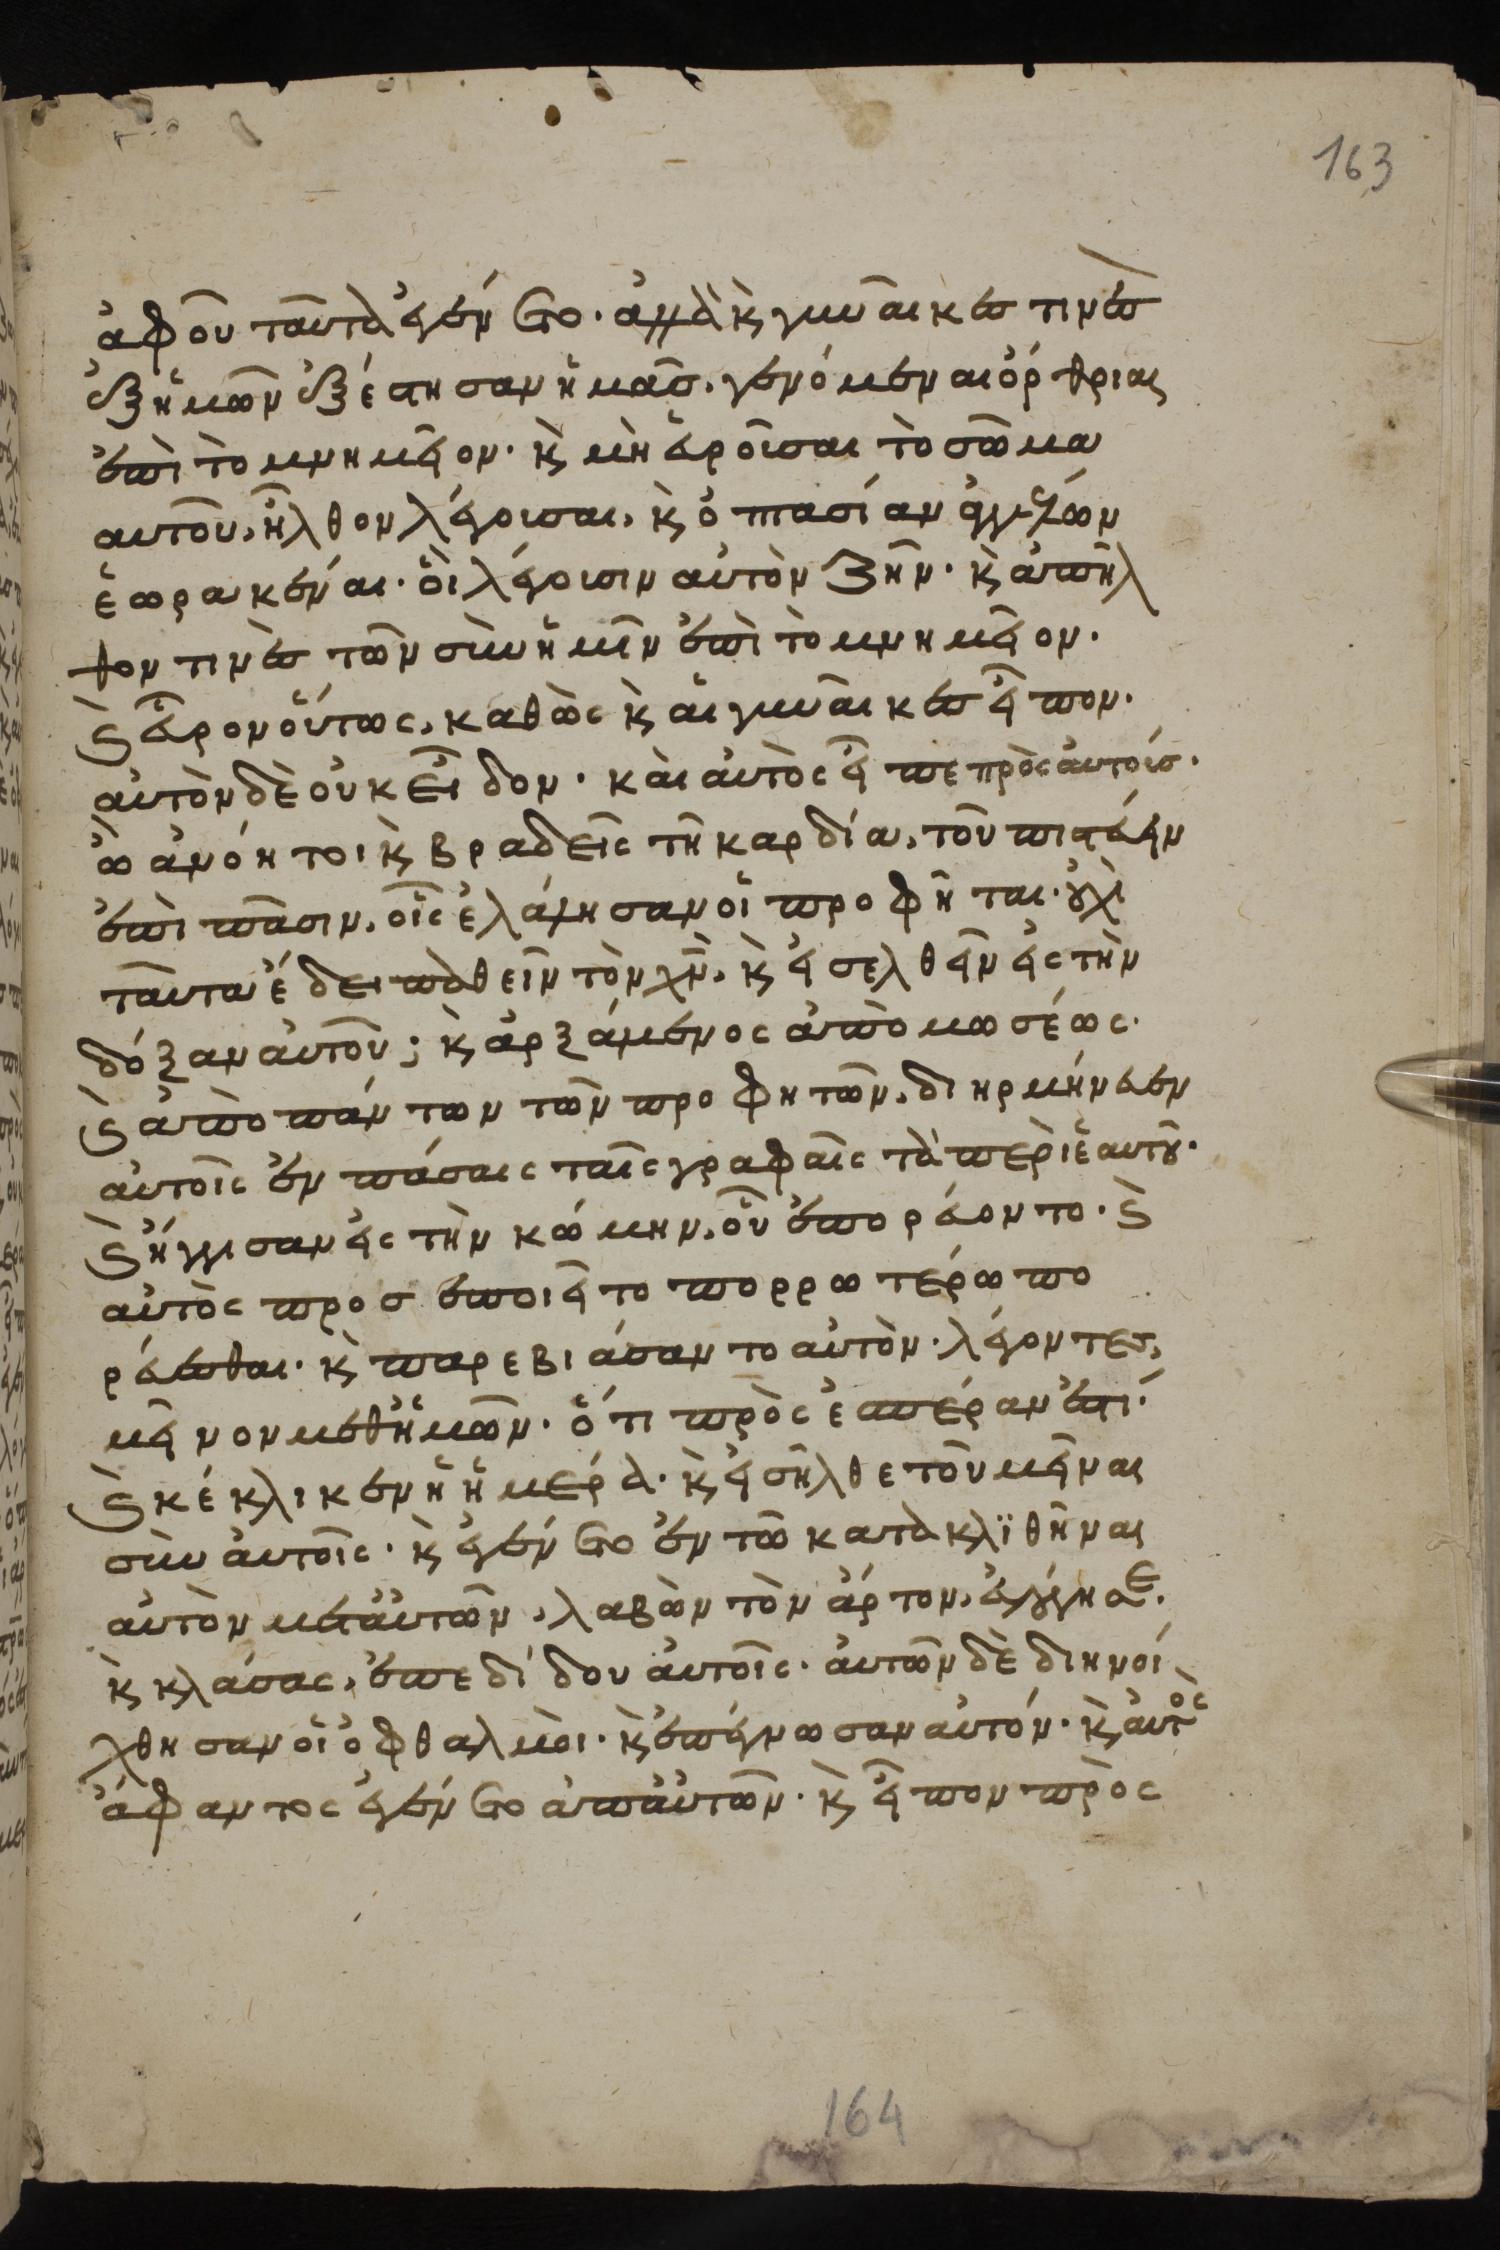 163
ἀφοῦ ταῦτα ἐγένετο· ἀλλὰ κ̀ γυναῖκες τινὲς
ἐξ ἡμῶν ἐξέστησαν ἡμᾶς, γενόμεναι ὄρθριαι
ἐπὶ τὸ μνημεῖον· κ̀ μὴ εὑροῦσαι τὸ σῶμα
αυτοῦ, ἦλθον λέγουσαι, κ̀ ὀπτασίαν ἀγγέλων
ἑωρακέναι· ὁὶ λέγουσιν αὐτὸν ζῆν· κ̀ ἀπῆλ
θον τινὲς τῶν σὺν ἡμῖν ἐπὶ τὸ μνημεῖον·
κ̀ εὗρον οὕτως, καθὼς κ̀ αἱ γυναῖκες εἶπον·
αὐτὸν δὲ οὐκ εἶδον· κὰι αὐτὸς εἶπε πρὸς ἀυτούς·
ὦ ἀνόητοι κ̀ βραδεῖς τῆ καρδία, τοῦ πιστεύειν
ἐπὶ πᾶσιν, οἷς ἐλάλησαν οἱ προφῆται· οὐχὶ
ταῦτα ἔδει παθεῖν τὸν χν̄, κ̀ εἰσελθεῖν εἰς τὴν
δόξαν ἀυτοῦ; κ̀ ἀρξάμενος ἀπὸ μωσέως·
κ̀ ἀπὸ πάντων τῶν προφητῶν, διηρμήνευεν
ἀυτοῖς ἐν πάσαις ταῖς γραφαῖς τὰ περὶ ἑαυτοῦ·
κ̀ ἤγγισαν εἰς τὴν κώμην, οὗ ἐπορεύοντο· κ̀
αὐτὸς προσεποιεῖτο πορρωτέρω πο
ρεύεσθαι· κ̀ παρεβιάσαντο αὐτὸν· λέγοντες,
μεῖνον μεθ' ἡμῶν· ὅτι πρὸς ἑσπέραν ἐστί·
κ̀ κέκλικεν ἡ ἡμέρα· κ̀ εἰσῆλθε τοῦ μεῖναι
σὺν ἀυτοῖς· κ̀ ἐγένετο ἐν τῶ κατακλϊθῆναι
αὐτὸν μετ' ἀυτῶν, λαβὼν τὸν ἄρτον, εὐλόγησε·
κ̀ κλάσας, ἐπεδίδου ἀυτοῖς· ἀυτῶν δὲ διηνοί
χθησαν οἱ ὀφθαλμὸι· κ̀ ἐπέγνωσαν αὐτόν· κ̀ ἀυτὸς
ἄφαντος ἐγένετο ἀπ' ἀυτῶν· κ̀ εἶπον πρὸς
164